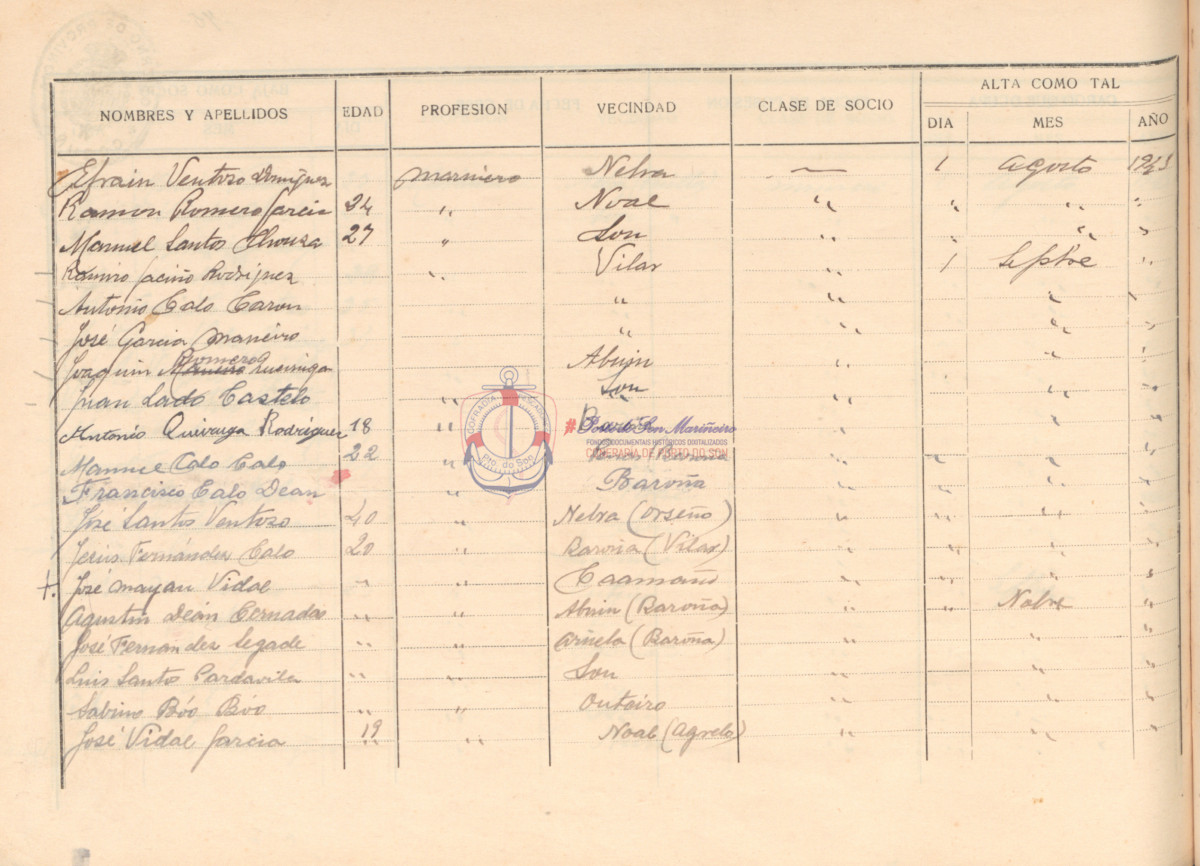 ALTA COMO TAL
NOMBRES Y APELLIDOS EDAD PROFESION VECINDAD CLASE DE SOCIO DIA MES AÑO
Efrain Ventoso Dominguez marinero Nebra — 1 Agosto 1943
Ramon Romero Garcia 24 " Noal " " " "
Manuel Santos 27 " Son " " " "
Ramiro Rodriguez " Vilar " 1 Septbre "
Antonio Calo Caron " " " "
José Garcia Maneiro " " " "
Joaquin Romero Abuin " " "
Juan Lado Castelo " Son " " "
Antonio Quiruga Rodriguez 18 " " " "
Manuel Calo Calo 22 " " " " "
Francisco Calo Dean " Baroña " " " "
José Santos Ventoso 40 " Nebra (Orseño) " " " "
Jesús Fernández Calo 20 " Baroña (Vilar) " " " "
+. José Mayan Vidal " " Caamaño " " " "
Agustin Deán Cernadas " " Abuin (Baroña) " " Nobre "
José Fernandez Segade " " Arnela (Baroña) " " "
Luis Santos Pardavila " " Son " " "
Sabino Bóo Bóo " " Outeiro " " "
José Vidal Garcia 19 " " Noal (Agrelo) " " "
COFRADÍA PESCADORES
Pto. do Son
#Porto do Son Mariñeiro
FONDOS DOCUMENTAIS HISTÓRICOS DIXITALIZADOS
CONFRARÍA DE PORTO DO SON